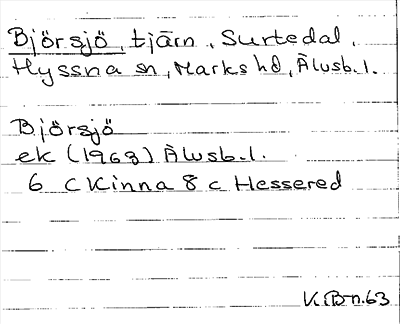 Björsjö, tjärn, Surtedal,
Hyssna sn, Marks hd, Älvsb. l.
Björsjö
ek (1963) Älvsb. l.
6 C Kinna 8 c Hessered
KBn.63